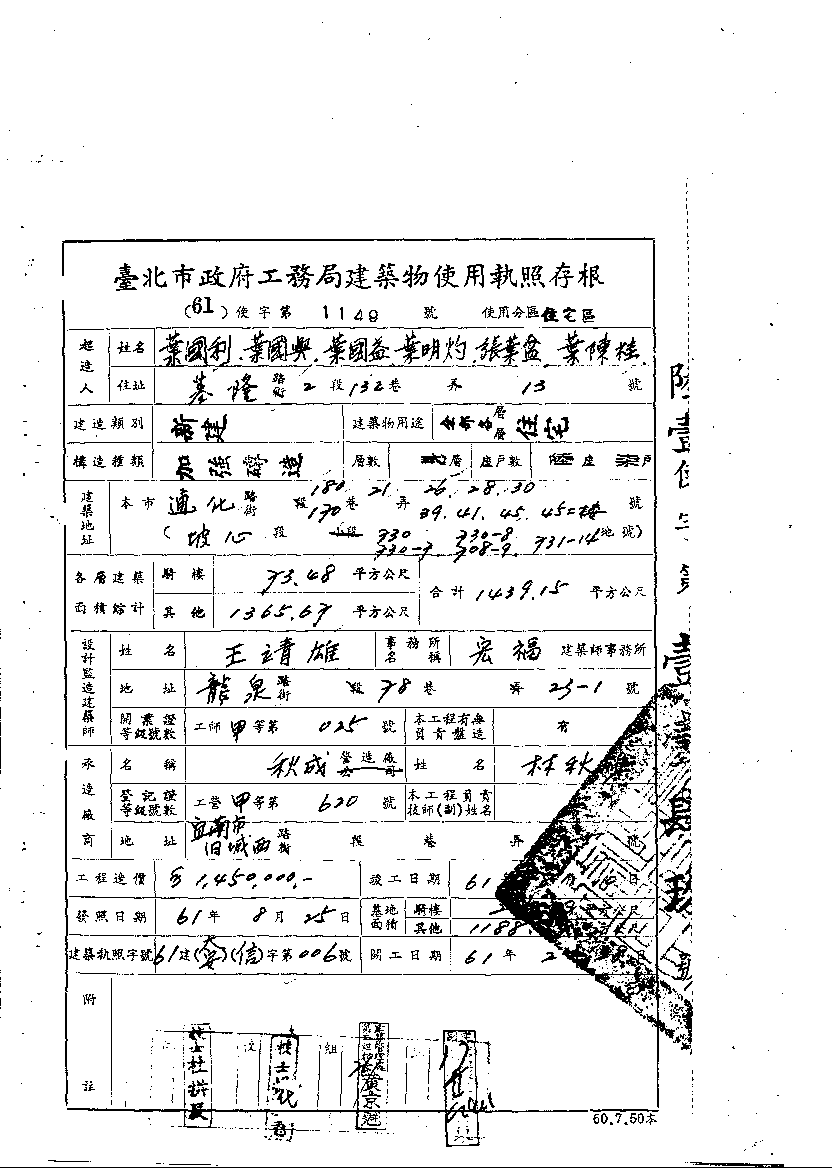 臺北市政府工務局建築物使用執照存根
(61)使字第 1149 號 使用分區 住宅區
起造人 姓名 葉國利、葉國興、葉國益、葉明灼、張葉盆、葉陳桂
住址 基隆路街 2 段 132 巷 弄 13 號
建造類別 新建 建築物用途 全部各層層住宅
構造種類 加強磚造 層數 層 座戶數 座 戶
建築地址 本市 通化路街 段 180 巷 21 弄 26.28.30 號
170 39.41.45.45=樓
(坡心段 小段 730 730-8 地號)
730-7 708-9 731-14
各層建築面積計 騎樓 73.48 平方公尺 合計 1439.15 平方公尺
其他 1365.67 平方公尺
設計監造建築師 姓名 王靖雄 事務所名稱 宏福 建築師事務所
地址 龍泉路街 段 78 巷 弄 25-1 號
開業證等級號數 工師甲等第 025 號 本工程有無負責監造 有
承造廠商 名稱 秋成營造廠公司 姓名 林秋
登記證等級號數 工營甲等第 620 號 本工程負責技師(副)姓名
地址 台南市旧城西路街 段 巷 弄 號
工程造價 1,450,000,- 竣工日期 61 日
發照日期 61年 8月 25日 基地面積 騎樓 平方公尺
其他 1188
建築執照字號 61建(大安)(信)字第006號 開工日期 61年 2
附註
技士杜
技士
組
60.7.50本
陸壹使字第壹壹肆玖號